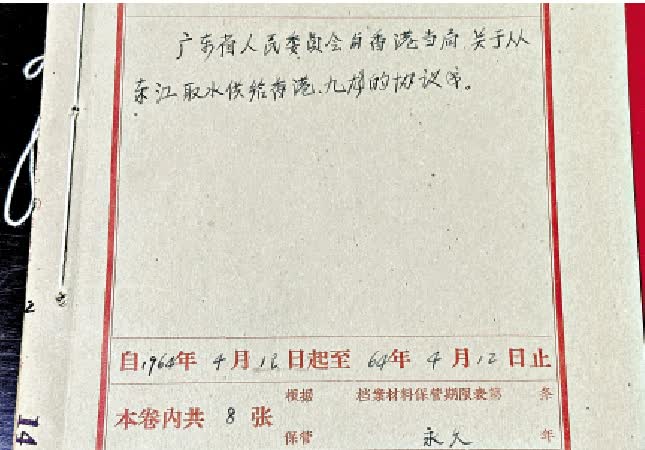 广东省人民委员会与香港当局关于从
东江取水供给香港、九龙的协议书。
自1964年4月12日起至64年4月12日止
根据 档案材料保管期限表第 条
本卷内共8张
保管 永久 年
14